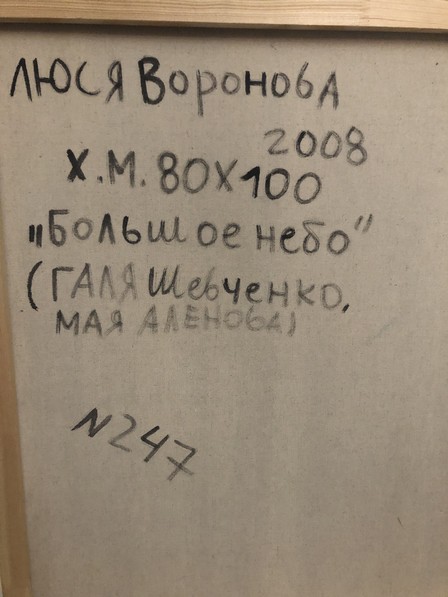 Люся Воронова
2008
х.м. 80х100
"Большое небо"
(Галя Шевченко,
Мая Аленова)
N247